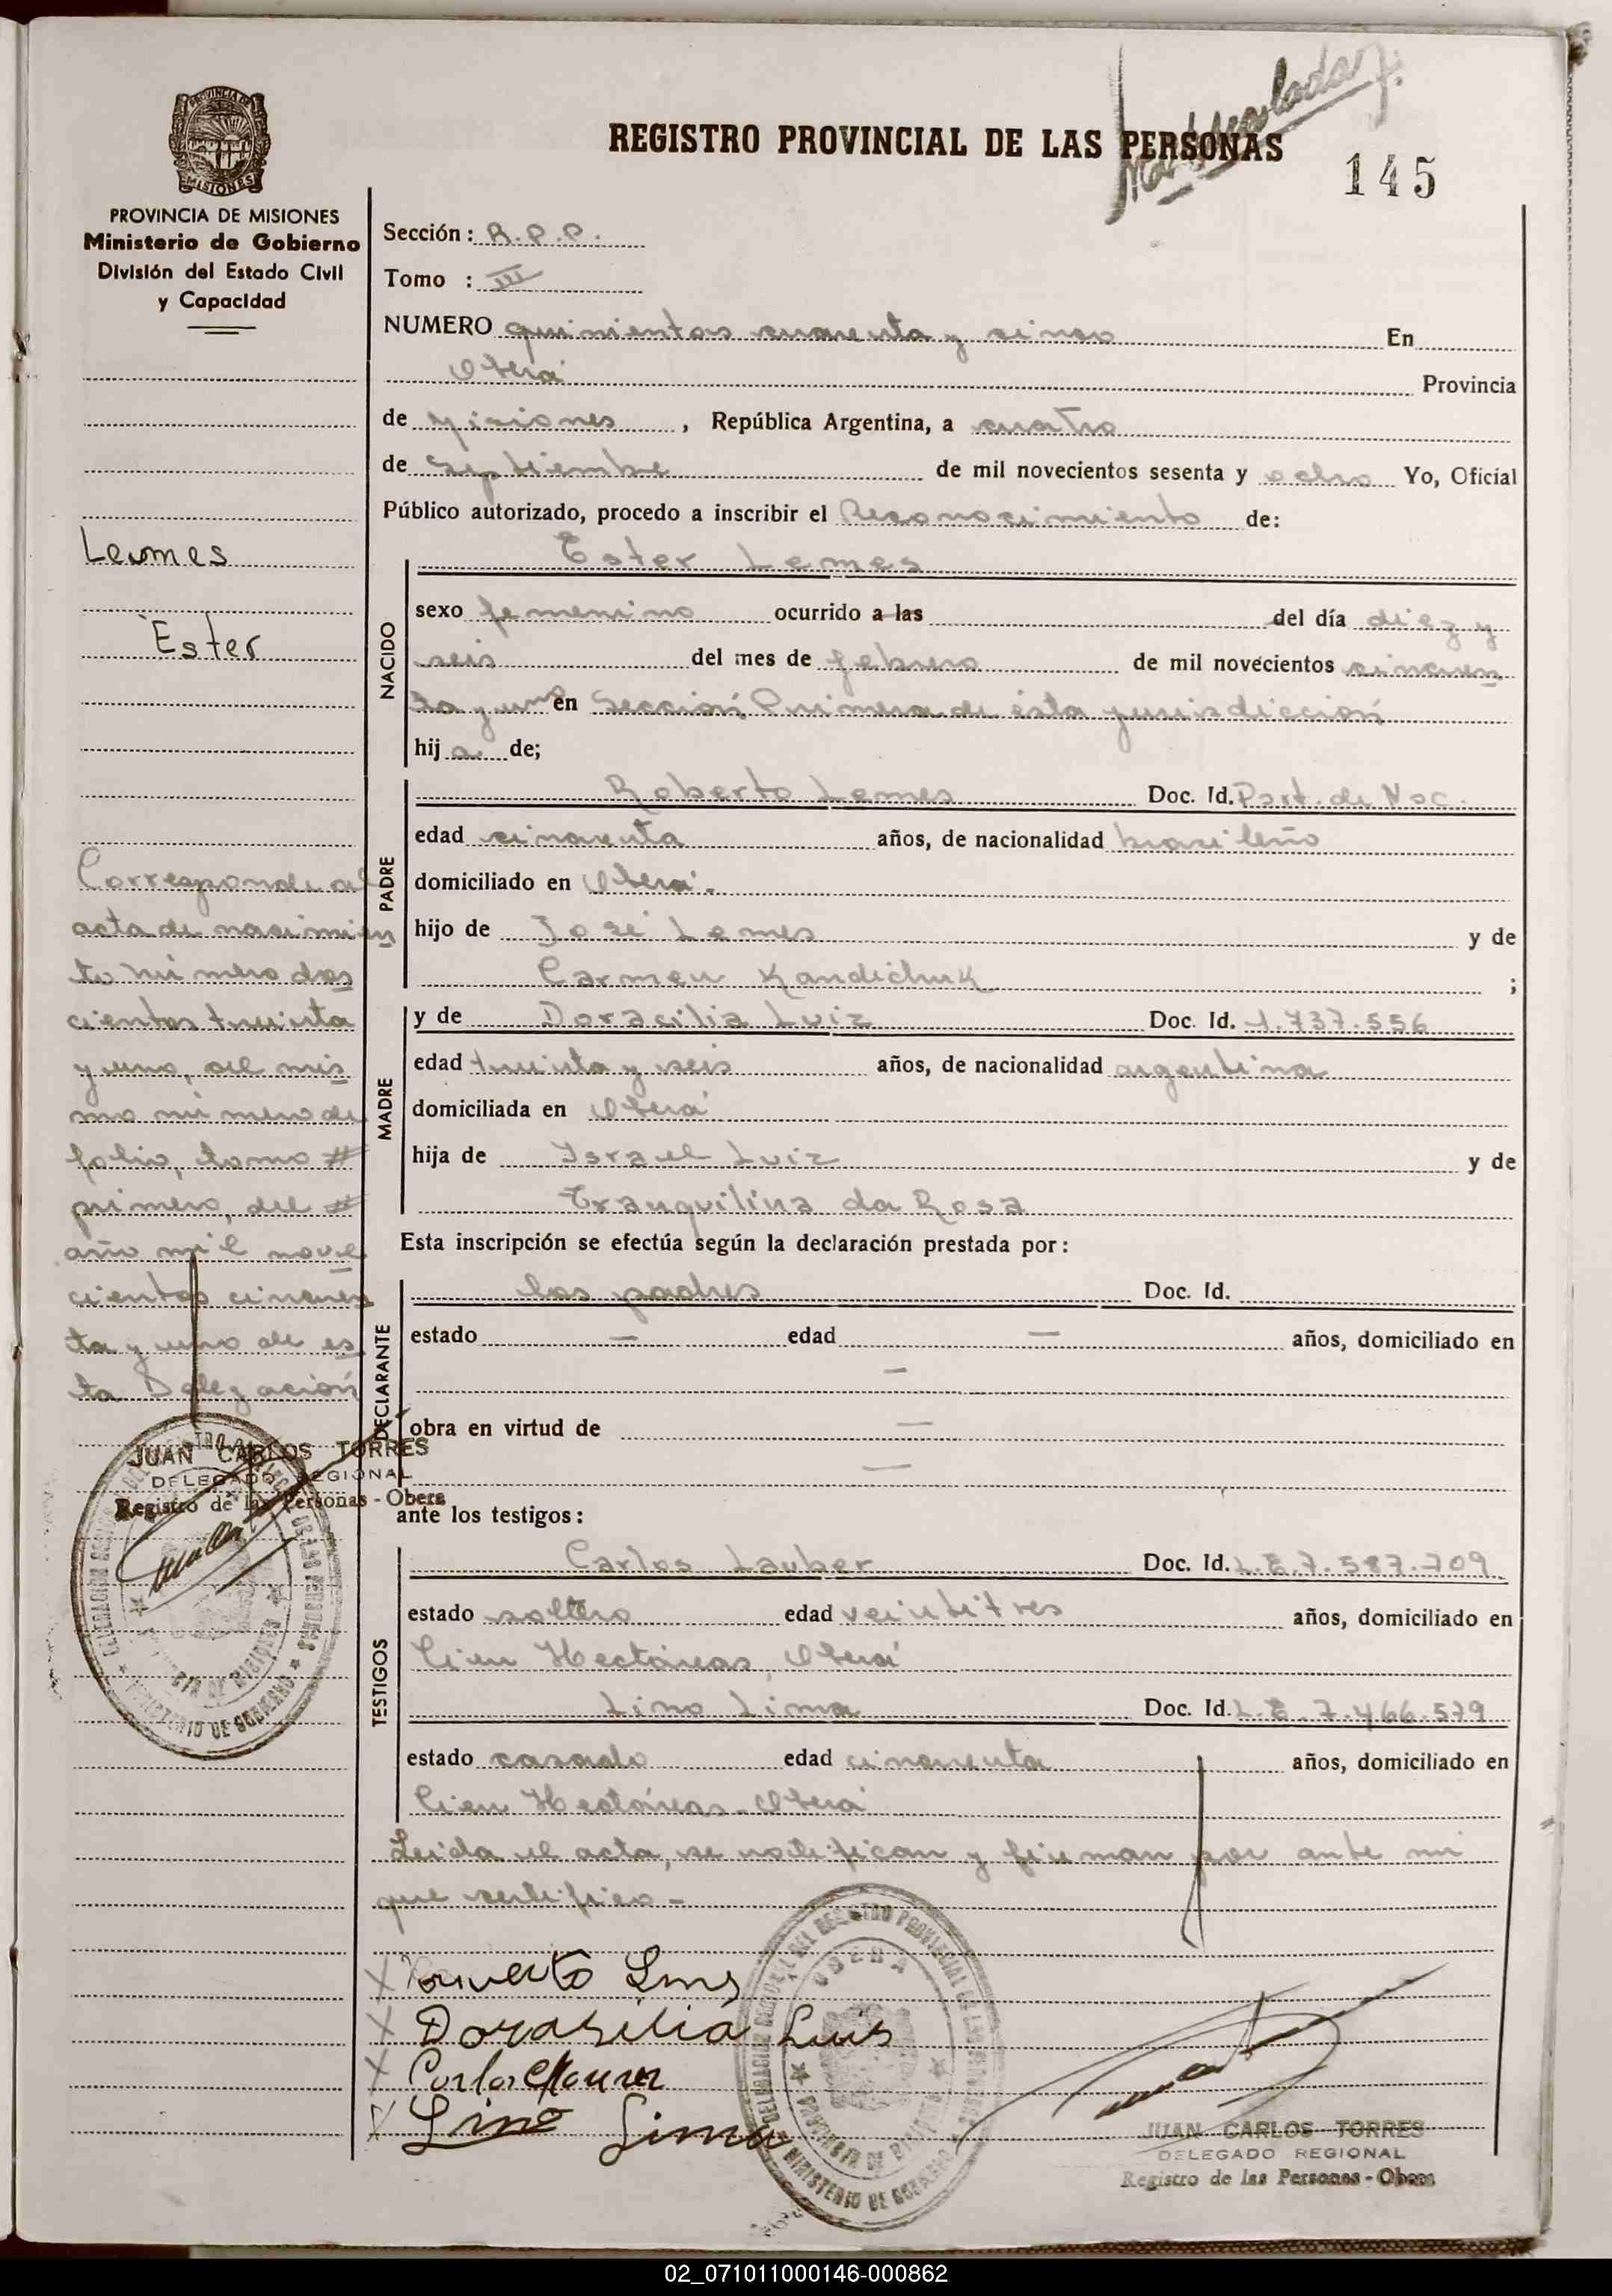 REGISTRO PROVINCIAL DE LAS PERSONAS
145
PROVINCIA DE MISIONES
Ministerio de Gobierno
División del Estado Civil
y Capacidad
Sección: R.P.P.
Tomo : III
NUMERO quinientos cuarenta y cinco En
Oberá Provincia
de Misiones, República Argentina, a cuatro
de Septiembre de mil novecientos sesenta y ocho Yo, Oficial
Público autorizado, procedo a inscribir el Reconocimiento de:
Lemes
Ester
NACIDO
Ester Lemes
sexo femenino ocurrido a las del día diez y
seis del mes de febrero de mil novecientos cincuen
ta y uno en Sección Primera de ésta jurisdicción
hija de;
PADRE
Roberto Lemes Doc. Id. Part. de Noc.
edad cincuenta años, de nacionalidad brasileño
domiciliado en Oberá.
hijo de José Lemes y de
Carmen Kandichuk ;
MADRE
y de Doracilia Luiz Doc. Id. 1.737.556
edad treinta y seis años, de nacionalidad argentina
domiciliada en Oberá
hija de Israel Luiz y de
Tranquilina da Rosa
Esta inscripción se efectúa según la declaración prestada por:
DECLARANTE
los padres Doc. Id.
estado — edad — años, domiciliado en
—
obra en virtud de —
—
Corresponde al
acta de nacimien
to número dos
cientos treinta
y uno, del mis
mo número de
folio, tomo #
primero, del #
año mil nove
cientos cincuen
ta y uno de es
ta Delegación
JUAN CARLOS TORRES
DELEGADO REGIONAL
Registro de las Personas - Obera
ante los testigos:
TESTIGOS
Carlos Lauber Doc. Id. L.E.7.587.709
estado soltero edad veintitres años, domiciliado en
Cien Hectáreas, Oberá
Lino Lima Doc. Id. L.E.7.466.579
estado casado edad cincuenta años, domiciliado en
Cien Hectáreas - Oberá
Leida el acta, se notifican y firman por ante mi
que certifico -
X Lems
X Dorasilia Luis
X Carlos
X Lino Lima
OBERA
JUAN CARLOS TORRES
DELEGADO REGIONAL
Registro de las Personas - Obera
02_071011000146-000862